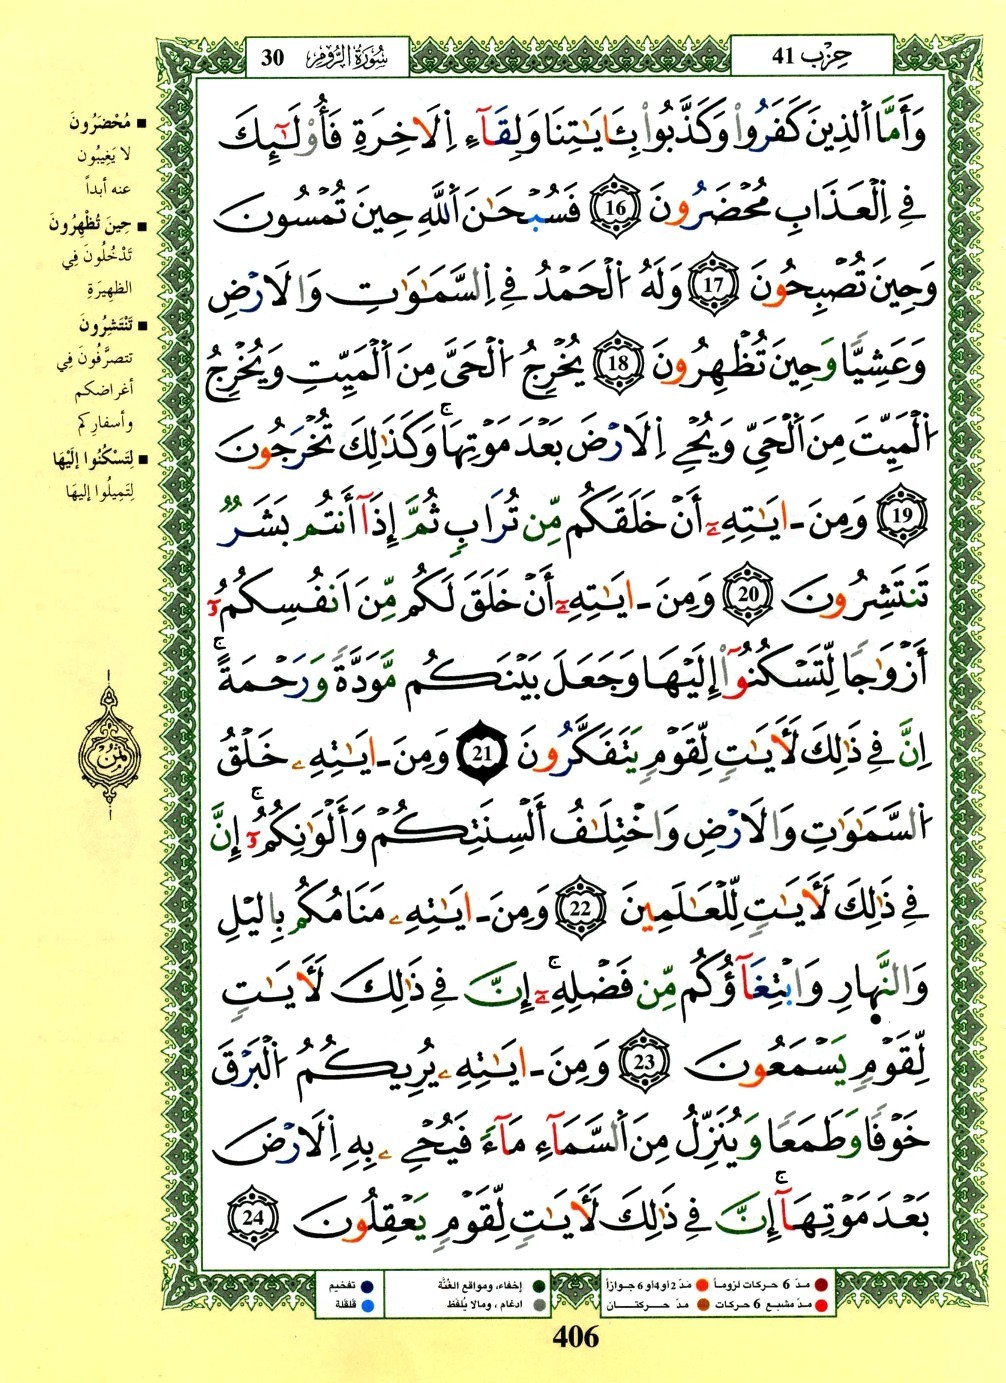 حِزْب 41
سُورَةُ الرُّومِ 30
وَأَمَّا اَ۬لذِينَ كَفَرُواْ وَكَذَّبُواْ بِـَٔايَٰتِنَا وَلِقَآءِ اِ۬لَاخِرَةِ فَأُوْلَٰٓئِكَ
فِے اِ۬لْعَذَابِ مُحْضَرُونَ 16 فَسُبْحَٰنَ اَ۬للَّهِ حِينَ تُمْسُونَ
وَحِينَ تُصْبِحُونَ 17 وَلَهُ اُ۬لْحَمْدُ فِے اِ۬لسَّمَٰوَٰتِ وَالَارْضِ
وَعَشِيّٗا وَحِينَ تُظْهِرُونَ 18 يُخْرِجُ اُ۬لْحَيَّ مِنَ اَ۬لْمَيِّتِ وَيُخْرِجُ
اُ۬لْمَيِّتَ مِنَ اَ۬لْحَيِّ وَيُحْيِ اِ۬لَارْضَ بَعْدَ مَوْتِهَاۖ وَكَذَٰلِكَ تُخْرَجُونَ
19 وَمِنَ ـ ايَٰتِهِۦٓ أَنْ خَلَقَكُم مِّن تُرَابٖ ثُمَّ إِذَآ أَنتُم بَشَرٞ
تَنتَشِرُونَ 20 وَمِنَ ـ ايَٰتِهِۦٓ أَنْ خَلَقَ لَكُم مِّنَ اَنفُسِكُمُۥٓ
أَزْوَٰجٗا لِّتَسْكُنُوٓاْ إِلَيْهَا وَجَعَلَ بَيْنَكُم مَّوَدَّةٗ وَرَحْمَةًۖ
اِنَّ فِے ذَٰلِكَ لَأٓيَٰتٖ لِّقَوْمٖ يَتَفَكَّرُونَ 21 وَمِنَ ـ ايَٰتِهِۦ خَلْقُ
اُ۬لسَّمَٰوَٰتِ وَالَارْضِ وَاخْتِلَٰفُ أَلْسِنَتِكُمْ وَأَلْوَٰنِكُمُۥٓۖ إِنَّ
فِے ذَٰلِكَ لَأٓيَٰتٖ لِّلْعَٰلَمِينَ 22 وَمِنَ ـ ايَٰتِهِۦ مَنَامُكُم بِاليْلِ
وَالنَّهارِ وَابْتِغَآؤُكُم مِّن فَضْلِهِۦٓۖ إِنَّ فِے ذَٰلِكَ لَأٓيَٰتٖ
لِّقَوْمٖ يَسْمَعُونَ 23 وَمِنَ ـ ايَٰتِهِۦ يُرِيكُمُ اُ۬لْبَرْقَ
خَوْفٗا وَطَمَعٗا وَيُنَزِّلُ مِنَ اَ۬لسَّمَآءِ مَآءٗ فَيُحْيِۦ بِهِ اِ۬لَارْضَ
بَعْدَ مَوْتِهَآۖ إِنَّ فِے ذَٰلِكَ لَأٓيَٰتٖ لِّقَوْمٖ يَعْقِلُونَ 24
■ مُحْضَرُونَ
لا يَغِيبُون
عنه أبداً
■ حِينَ تُظْهِرُونَ
تَدْخُلُونَ فِي
الظهِيرَةِ
■ تَنْتَشِرُونَ
تتصرَّفُونَ فِي
أغراضكم
وأسفاركم
■ لِتَسْكُنُوا إلَيْهَا
لِتَمِيلُوا إليهَا
ثُمُن
مدّ 6 حركات لزوماً مدّ 2 أو 4 أو 6 جوازاً إخفاء، ومواقع الغُنَّة تفخيم
مدّ مشبع 6 حركات مدّ حركتان ادغام، ومالا يُلفَظ قلقلة
406